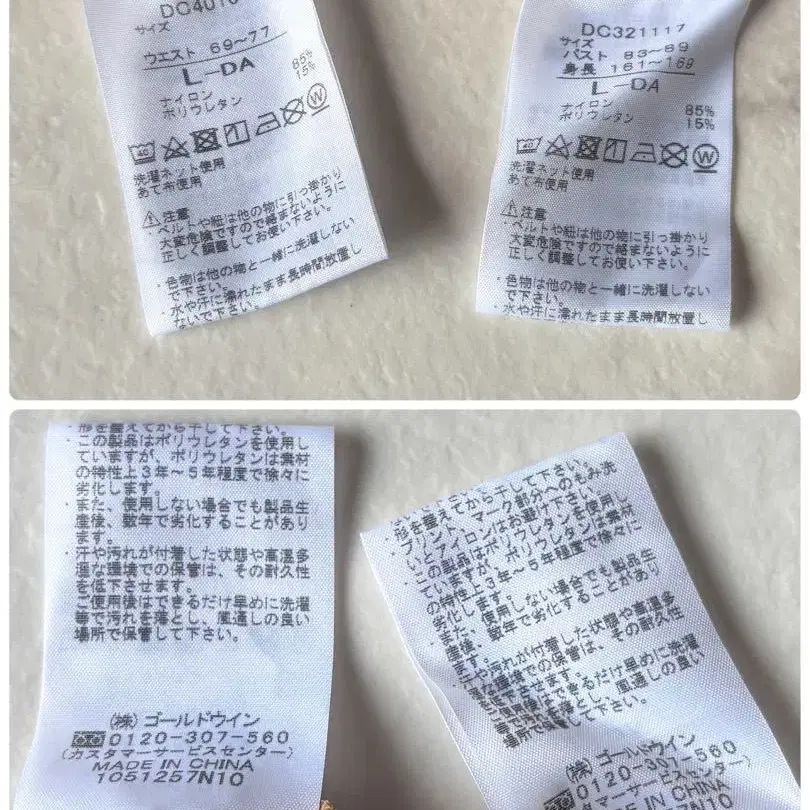 DC4016
サイズ
ウエスト 69~77
L-DA
ナイロン 85%
ポリウレタン 15%
40
W
洗濯ネット使用
あて布使用
注意
・ベルトや紐は他の物に引っ掛かり
大変危険ですので絡まないように
正しく調整してお使い下さい。
・色物は他の物と一緒に洗濯しない
で下さい。
・水や汗に濡れたまま長時間放置し
ないで下さい。
DC321117
サイズ
バスト 83~89
身長 161~169
L-DA
ナイロン 85%
ポリウレタン 15%
40
W
洗濯ネット使用
あて布使用
注意
・ベルトや紐は他の物に引っ掛かり
大変危険ですので絡まないように
正しく調整してお使い下さい。
・色物は他の物と一緒に洗濯しない
で下さい。
・水や汗に濡れたまま長時間放置し
・形を整えてから干して下さい。
・この製品はポリウレタンを使用し
ていますが、ポリウレタンは素材
の特性上3年~5年程度で徐々に
劣化します。
・また、使用しない場合でも製品生
産後、数年で劣化することがあり
ます。
・汗や汚れが付着した状態や高温多
湿な環境での保管は、その耐久性
を低下させます。
ご使用後はできるだけ早めに洗濯
等で汚れを落とし、風通しの良い
場所で保管して下さい。
(株)ゴールドウイン
0120-307-560
(カスタマーサービスセンター)
MADE IN CHINA
1051257N10
・形を整えてから干して下さい。
・プリント、マーク部分へのもみ洗
いとアイロンはお避け下さい。
・この製品はポリウレタンを使用し
ていますが、ポリウレタンは素材
の特性上3年~5年程度で徐々に
劣化します。
・また、使用しない場合でも製品生
産後、数年で劣化することがあり
ます。
・汗や汚れが付着した状態や高温多
湿な環境での保管は、その耐久性
を低下させます。
ご使用後はできるだけ早めに洗濯
等で汚れを落とし、風通しの良い
場所で保管して下さい。
(株)ゴールドウイン
0120-307-560
(カスタマーサービスセンター)
MADE IN CHINA